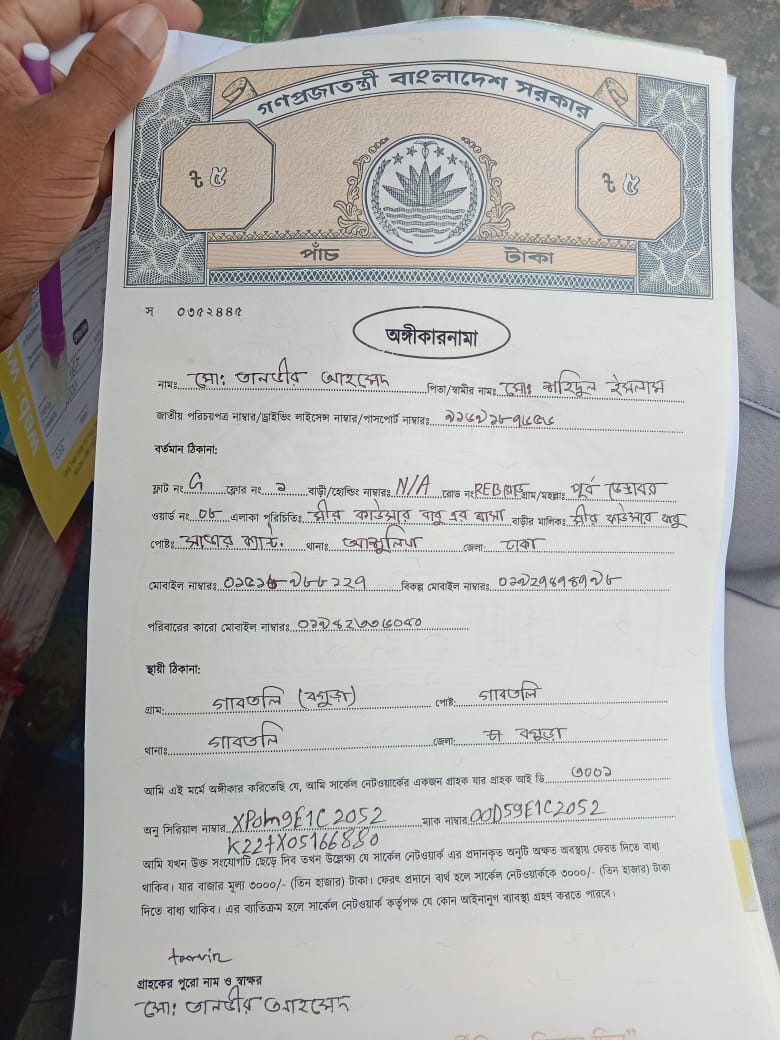 গণপ্রজাতন্ত্রী বাংলাদেশ সরকার
৳ ৫
৳ ৫
পাঁচ টাকা
স ০৩৫২৪৪৫
অঙ্গীকারনামা
নামঃ মো: তানভীর আহমেদ পিতা/স্বামীর নামঃ মোঃ জহিদুল ইসলাম
জাতীয় পরিচয়পত্র নাম্বার/ড্রাইভিং লাইসেন্স নাম্বার/পাসপোর্ট নাম্বারঃ
বর্তমান ঠিকানা:
ফ্লাট নং G ফ্লোর নং ২ বাড়ী/হোল্ডিং নাম্বারঃ N/A রোড নং REB রোড গ্রাম/মহল্লাঃ পূর্ব ডেন্ডাবর
ওয়ার্ড নং ০৮ এলাকা পরিচিতিঃ মীর কাউসার বাবু এর বাসা বাড়ীর মালিকঃ মীর কাউসার বাবু
পোষ্টঃ সাভার ক্যান্ট. থানাঃ আশুলিয়া জেলা: ঢাকা
মোবাইল নাম্বারঃ বিকল্প মোবাইল নাম্বারঃ
পরিবারের কারো মোবাইল নাম্বারঃ
স্থায়ী ঠিকানা:
গ্রাম: গাবতলি (বগুড়া) পোষ্ট: গাবতলি
থানাঃ গাবতলি জেলা: বগুড়া
আমি এই মর্মে অঙ্গীকার করিতেছি যে, আমি সার্কেল নেটওয়ার্কের একজন গ্রাহক যার গ্রাহক আই ডি ৩০০১
অনু সিরিয়াল নাম্বার XPON9E1C2052 ম্যাক নাম্বার 00D59E1C2052
K227X05166880
আমি যখন উক্ত সংযোগটি ছেড়ে দিব তখন উল্লেক্ষ্য যে সার্কেল নেটওয়ার্ক এর প্রদানকৃত অনুটি অক্ষত অবস্থায় ফেরত দিতে বাধ্য
থাকিব। যার বাজার মূল্য ৩০০০/- (তিন হাজার) টাকা। ফেরৎ প্রদানে ব্যর্থ হলে সার্কেল নেটওয়ার্ককে ৩০০০/- (তিন হাজার) টাকা
দিতে বাধ্য থাকিব। এর ব্যতিক্রম হলে সার্কেল নেটওয়ার্ক কর্তৃপক্ষ যে কোন আইনানুগ ব্যাবস্থা গ্রহন করতে পারবে।
tanvir
গ্রাহকের পুরো নাম ও স্বাক্ষর
মো: তানভীর আহমেদ